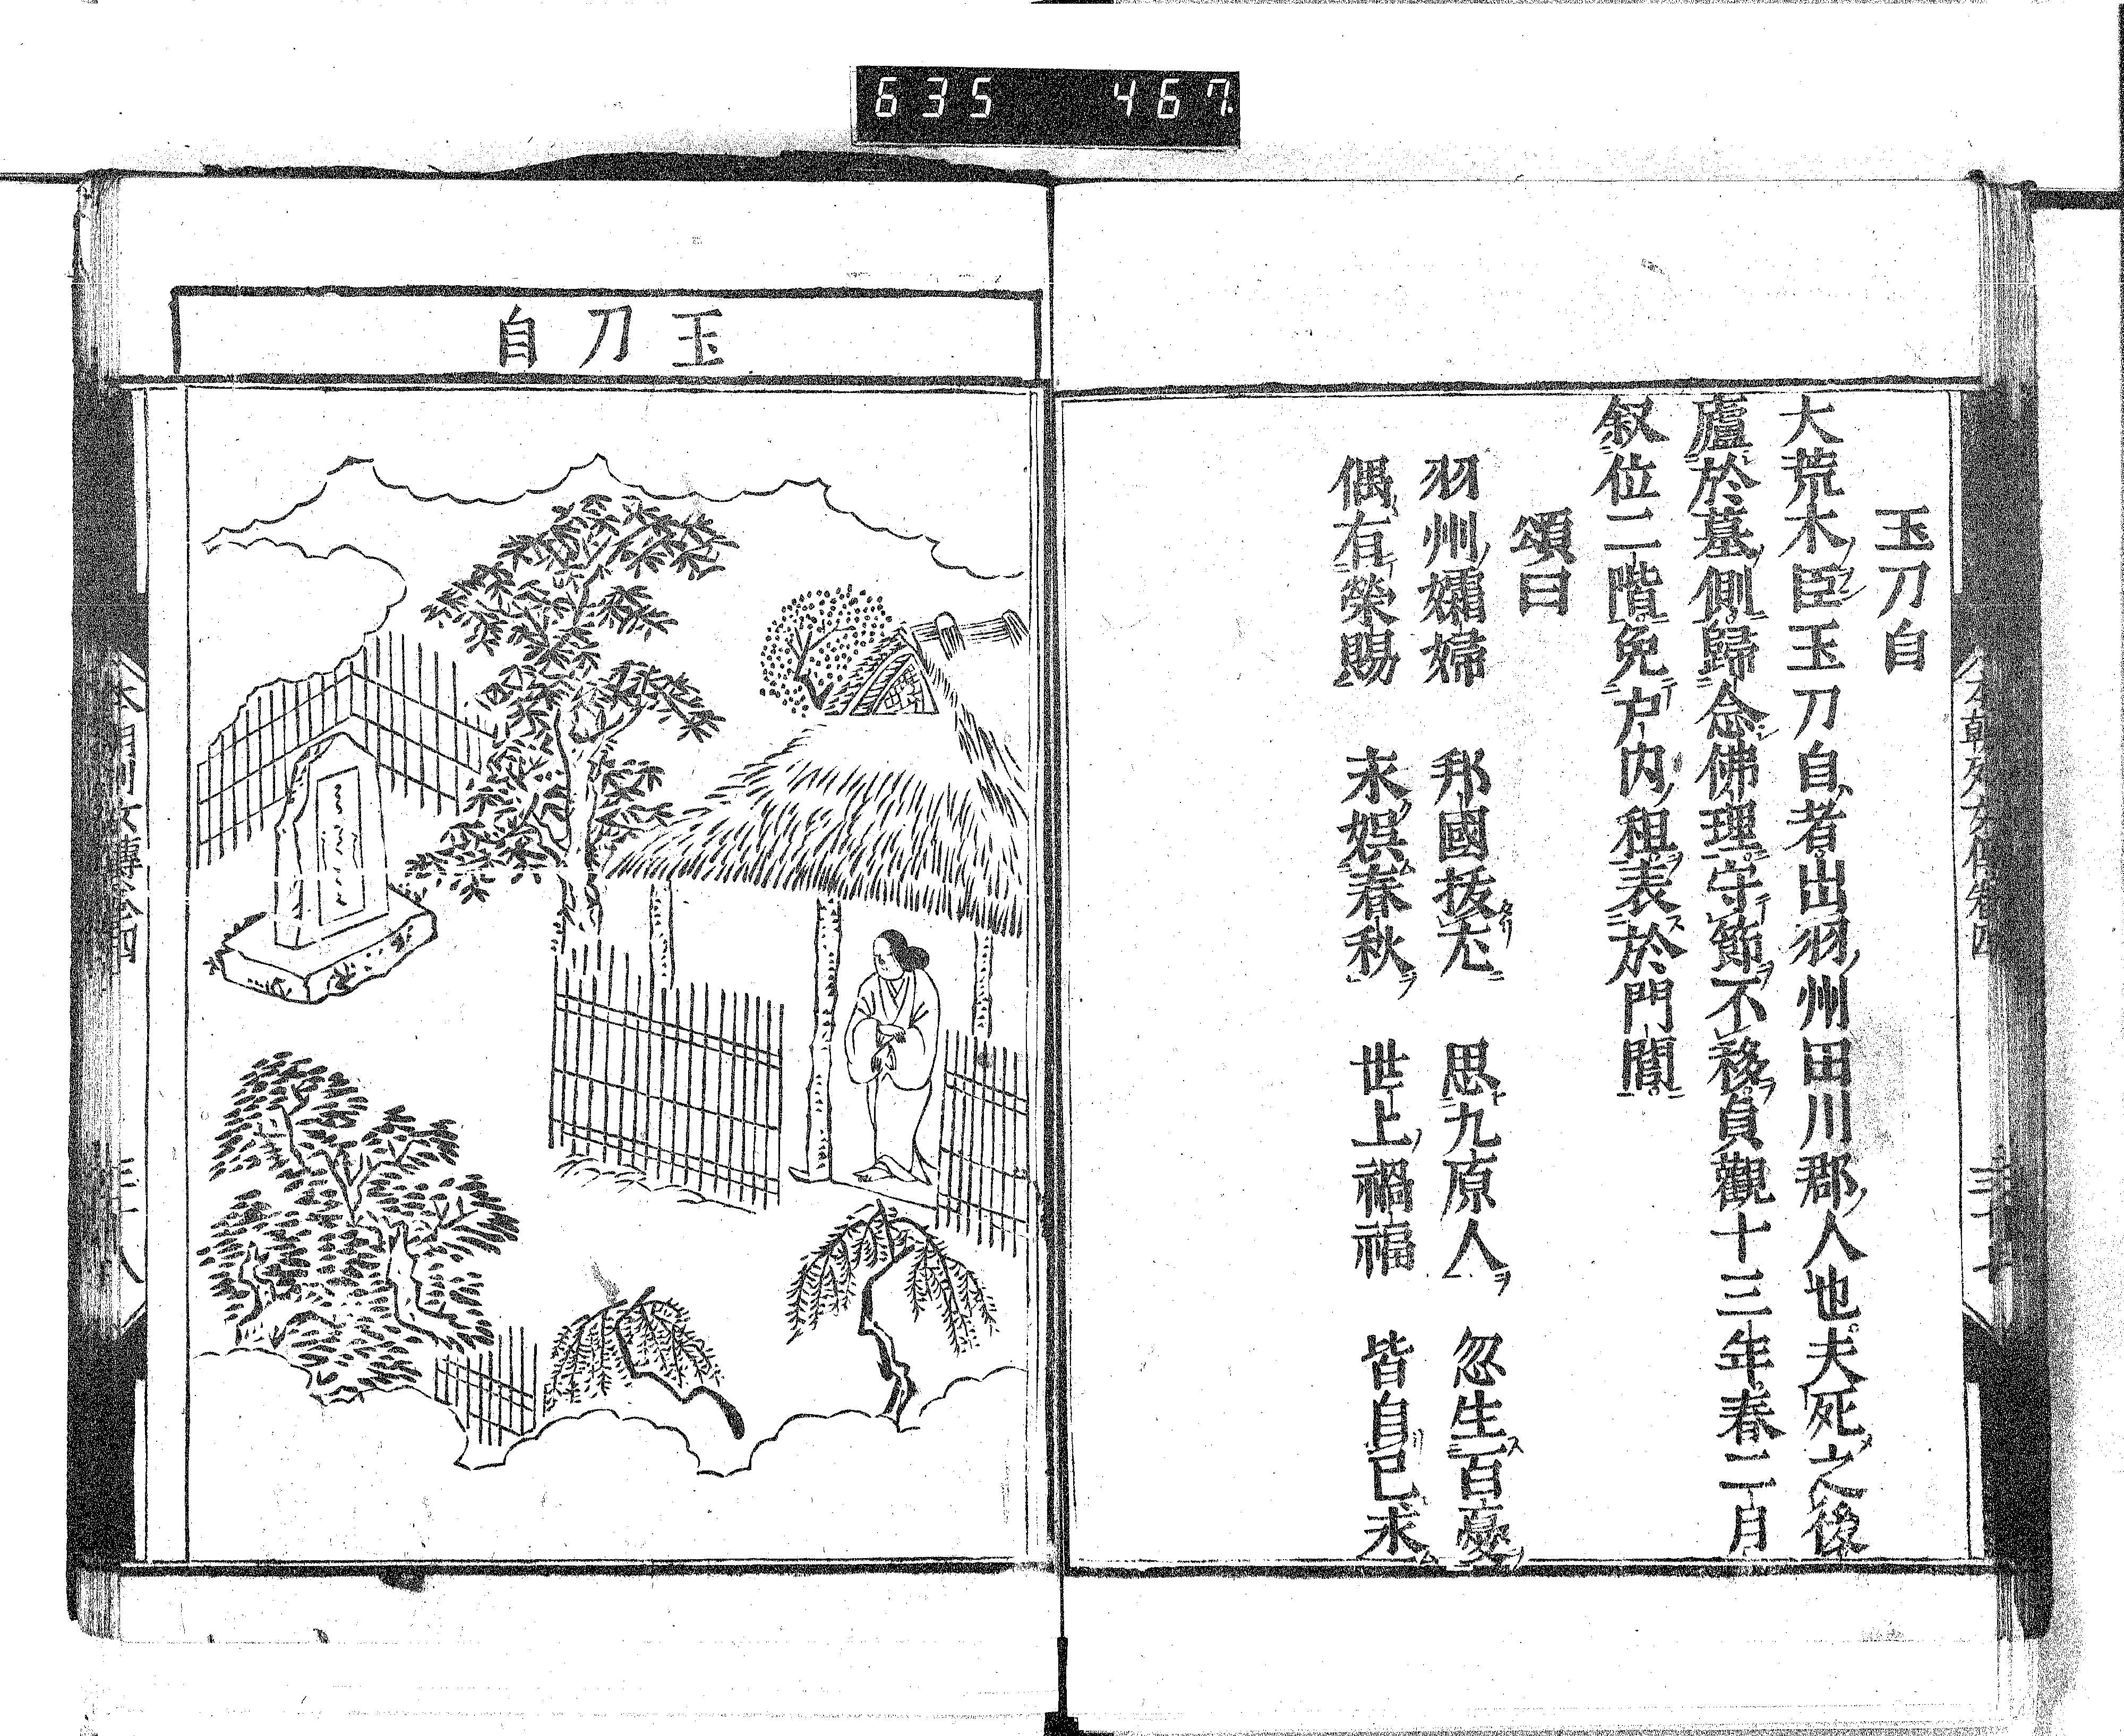 635 467
玉刀自
大荒木臣玉刀自者出羽州田川郡人也夫死之後
廬於墓側歸念佛理守節不移貞觀十三年春二月
叙位二階免戸內租表於門閭
頌曰
羽州孀婦 邦國拔尤 思九原人 忽生百憂
偶有榮賜 未娯春秋 世上禍福 皆自己求
玉刀自